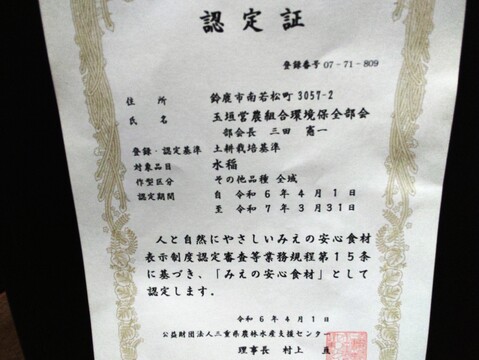 認定証
登録番号 07-71-809
住所 鈴鹿市南若松町3057-2
氏名 玉垣営農組合環境保全部会
部会長 三田 憲一
登録・認定基準 土耕栽培基準
対象品目 水稲
作型区分 その他品種 全域
認定期間 自 令和6年4月1日
至 令和7年3月31日
人と自然にやさしいみえの安心食材
表示制度認定審査等業務規程第15条
に基づき、「みえの安心食材」として
認定します。
令和6年4月1日
公益財団法人三重県農林水産支援センター
理事長 村上 亘